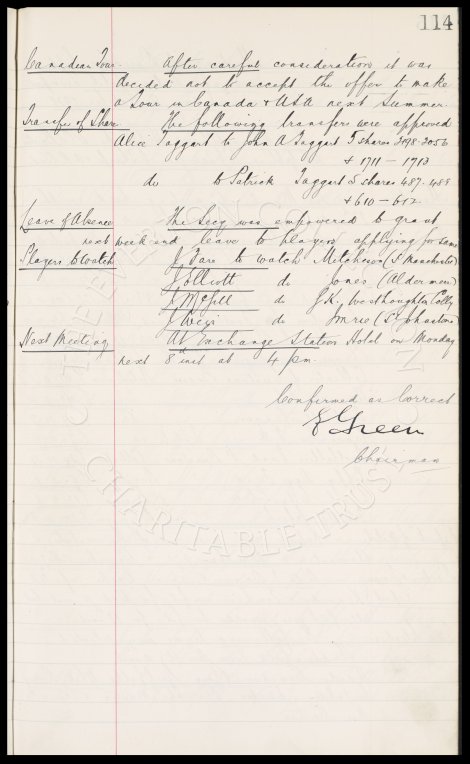 114
Canadian Tour After careful consideration it was
decided not to accept the offer to make
a Tour in Canada & USA next Summer.
Transfer of Share The following transfers were approved
Alice Taggart to John A Taggart 5 shares 3098. 3056
& 1711 - 1713
do to Patrick Taggart 5 shares 487. 488
& 610 - 612
Leave of Absence The Secy was empowered to grant
next week end leave to players applying for same
Players to watch J Fare to watch (S. Manchester)
J Elliott do Jones (Aldermere)
J McGill do G.K. Westhoughton Colly
J do Imrie (St Johnstone)
Next Meeting At Exchange Station Hotel on Monday
next 8th inst at 4 pm.
Confirmed as Correct
Green
Chairman
THE EVERTON
CHARITABLE TRUST